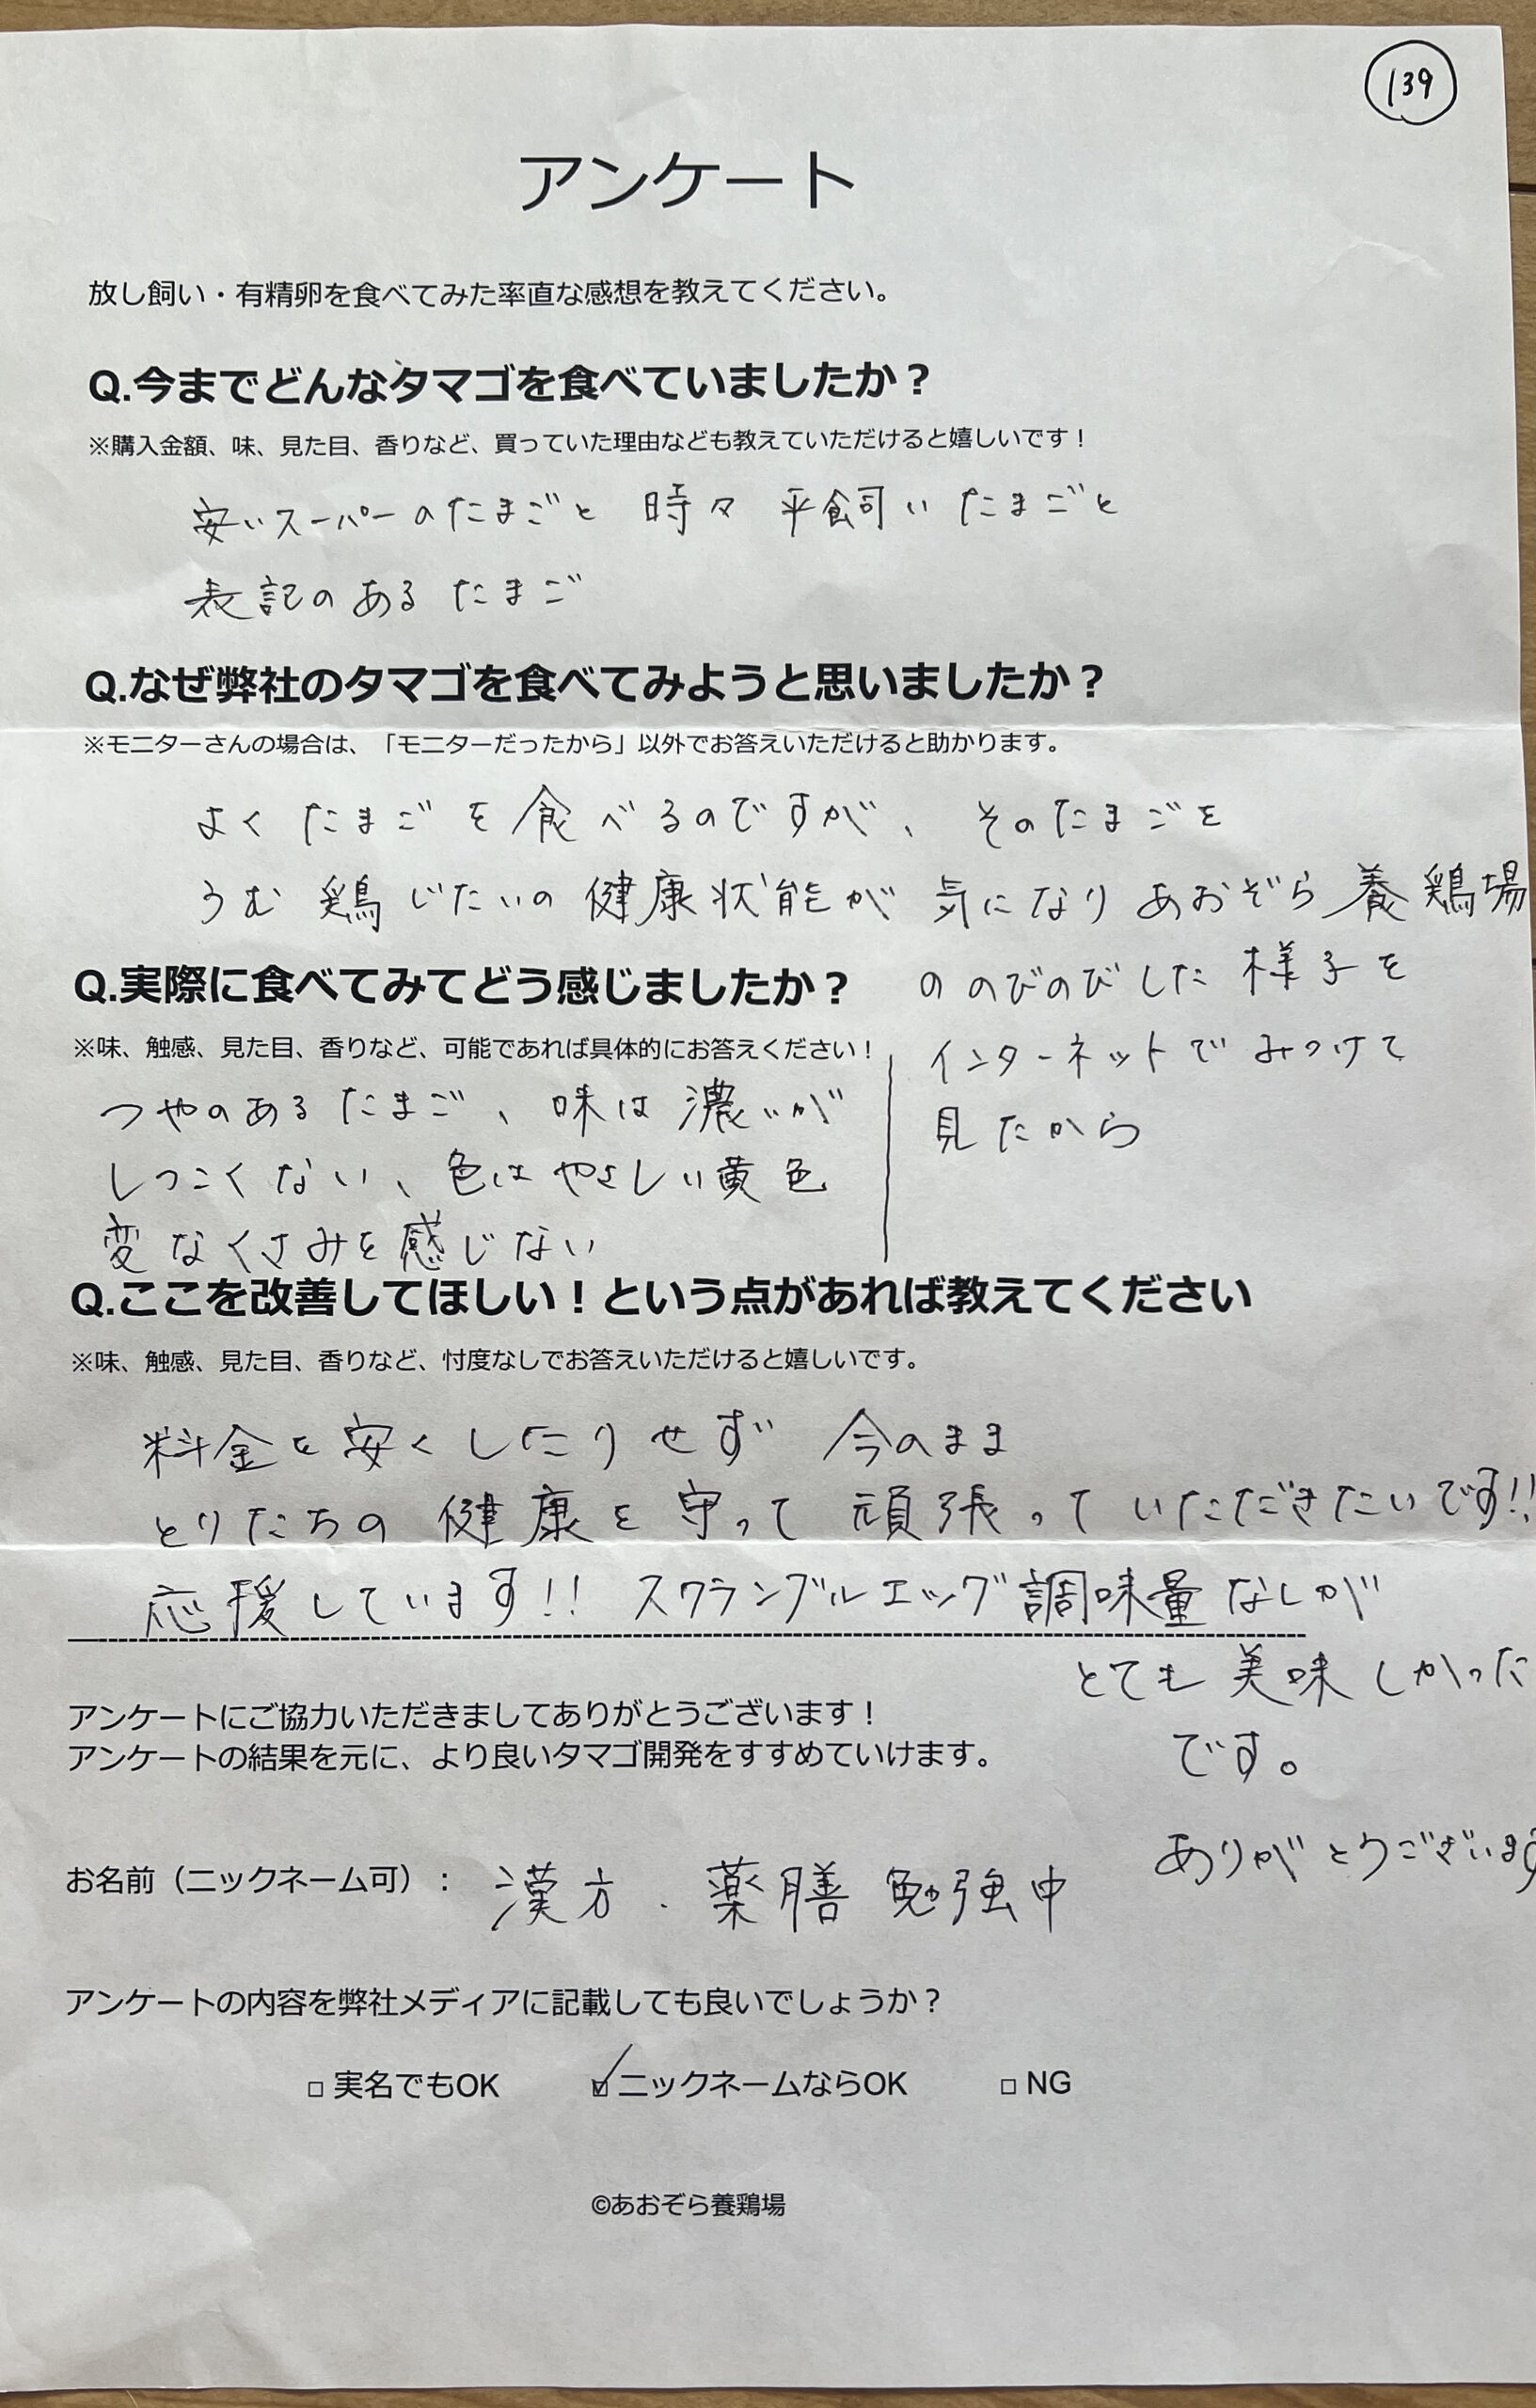 139
アンケート
放し飼い・有精卵を食べてみた率直な感想を教えてください。
Q.今までどんなタマゴを食べていましたか？
※購入金額、味、見た目、香りなど、買っていた理由なども教えていただけると嬉しいです！
安いスーパーのたまごと 時々 平飼い たまごと
表記のある たまご
Q.なぜ弊社のタマゴを食べてみようと思いましたか？
※モニターさんの場合は、「モニターだったから」以外でお答えいただけると助かります。
よく たまご を 食べるのですが、 そのたまごを
うむ 鶏 じたいの 健康状能が 気になり あおぞら養鶏場
の のびのびした 様子を
インターネットで みつけて
見たから
Q.実際に食べてみてどう感じましたか？
※味、触感、見た目、香りなど、可能であれば具体的にお答えください！
つやのある たまご、 味は 濃いが
しつこくない、 色は やさしい黄色
変なくさみを感じない
Q.ここを改善してほしい！という点があれば教えてください
※味、触感、見た目、香りなど、忖度なしでお答えいただけると嬉しいです。
料金を安くしたりせず 今のまま
とりたちの 健康を守って 頑張って いただきたいです!!
応援しています!! スクランブルエッグ調味量なしが
とても 美味しかった
です。
ありがとうございます
アンケートにご協力いただきましてありがとうございます！
アンケートの結果を元に、より良いタマゴ開発をすすめていけます。
お名前（ニックネーム可）： 漢方・薬膳 勉強中
アンケートの内容を弊社メディアに記載しても良いでしょうか？
□ 実名でもOK ☑ ニックネームならOK □ NG
©あおぞら養鶏場